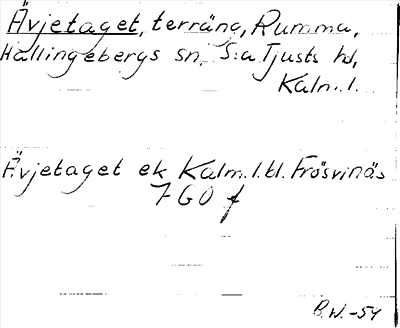 Ävjetaget, terräng, Rumma,
Hallingebergs sn, S:a Tjusts hd,
Kalm. l.
Ävjetaget ek Kalm. l. bl. Frösvinäs
7 G O f
B.W. -54